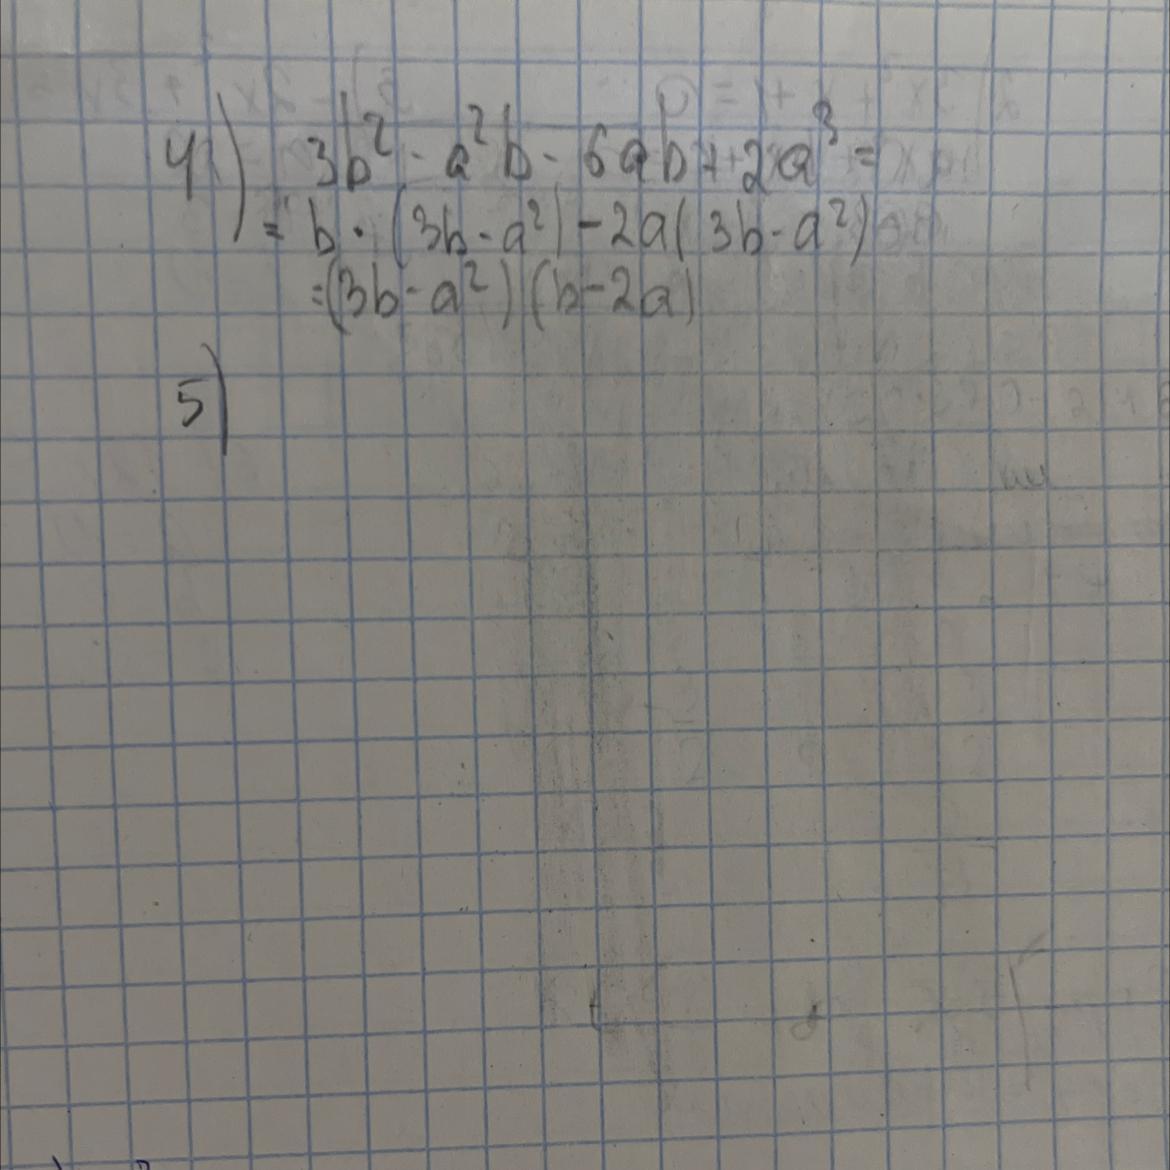 4) 3b² - a²b - 6ab + 2a³ =
= b · (3b - a²) - 2a(3b - a²)
= (3b - a²)(b - 2a)
5)